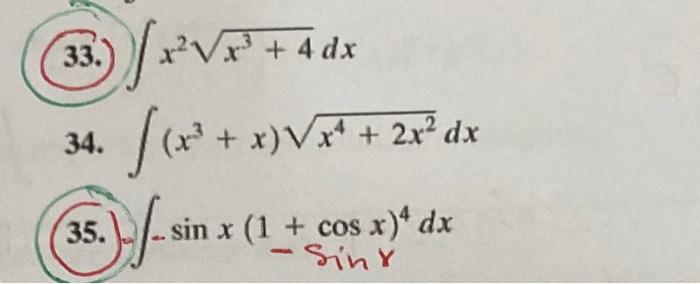 33. ∫ x²√(x³ + 4) dx
34. ∫ (x³ + x)√(x⁴ + 2x²) dx
35. - ∫ - sin x (1 + cos x)⁴ dx
- Sin x